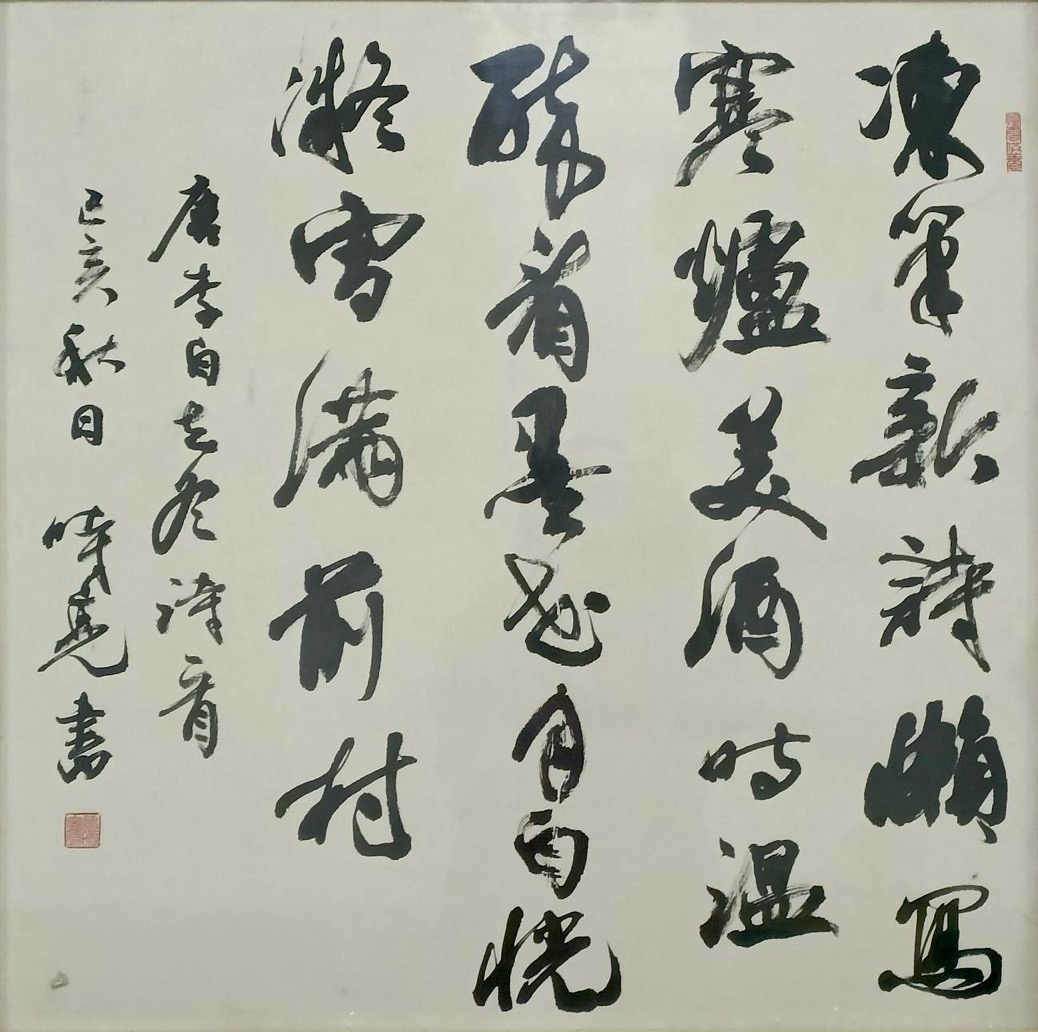 凍筆新詩嬾寫
寒爐美酒時溫
醉看墨花月白恍
凝雪滿前村
唐李白立冬詩首
己亥秋日 時亮書